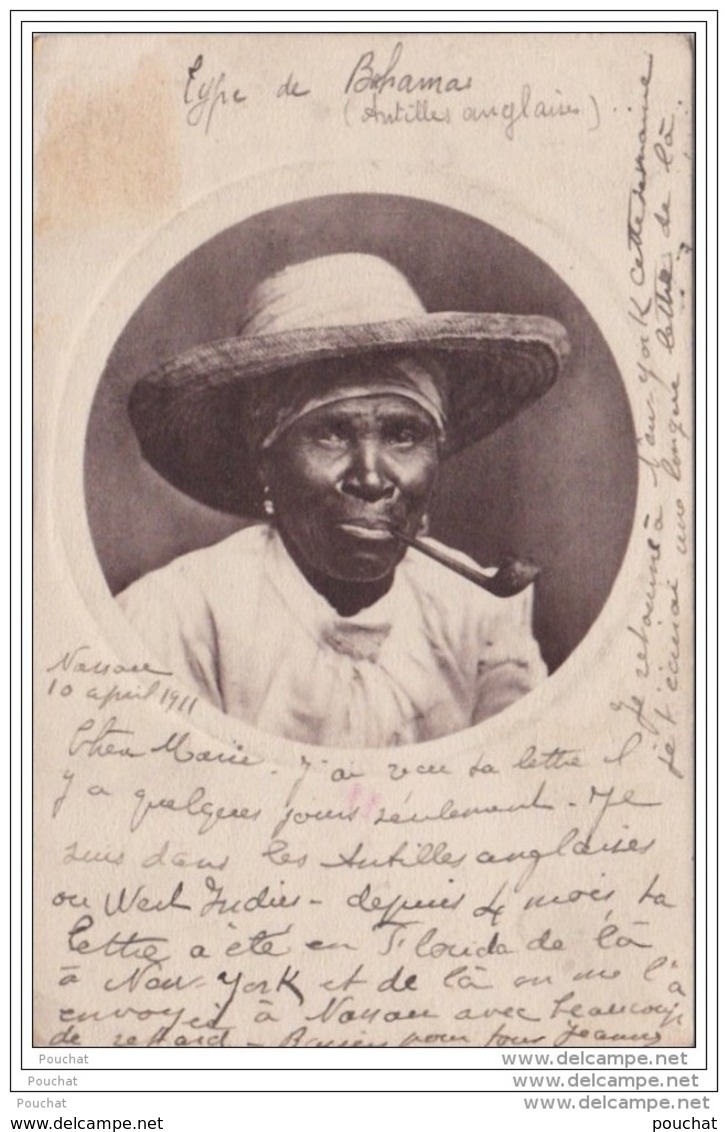 Type de Bahamas
(Antilles anglaises)
Nassau
10 april 1911
Cher Marie - J'ai reçu ta lettre il
y a quelques jours seulement - Je
suis dans les Antilles anglaises
ou West Indies - depuis 4 mois, ta
lettre a été en Florida de là
à New-York et de là on me l'a
envoyée à Nassau avec beaucoup
de retard - Baisers pour tous Jeanne
Je retourne à New-York cette semaine
je t'écrirai une longue lettre de là.
Pouchat
Pouchat
Pouchat
www.delcampe.net
www.delcampe.net
www.delcampe.net
www.delcampe.net
pouchat